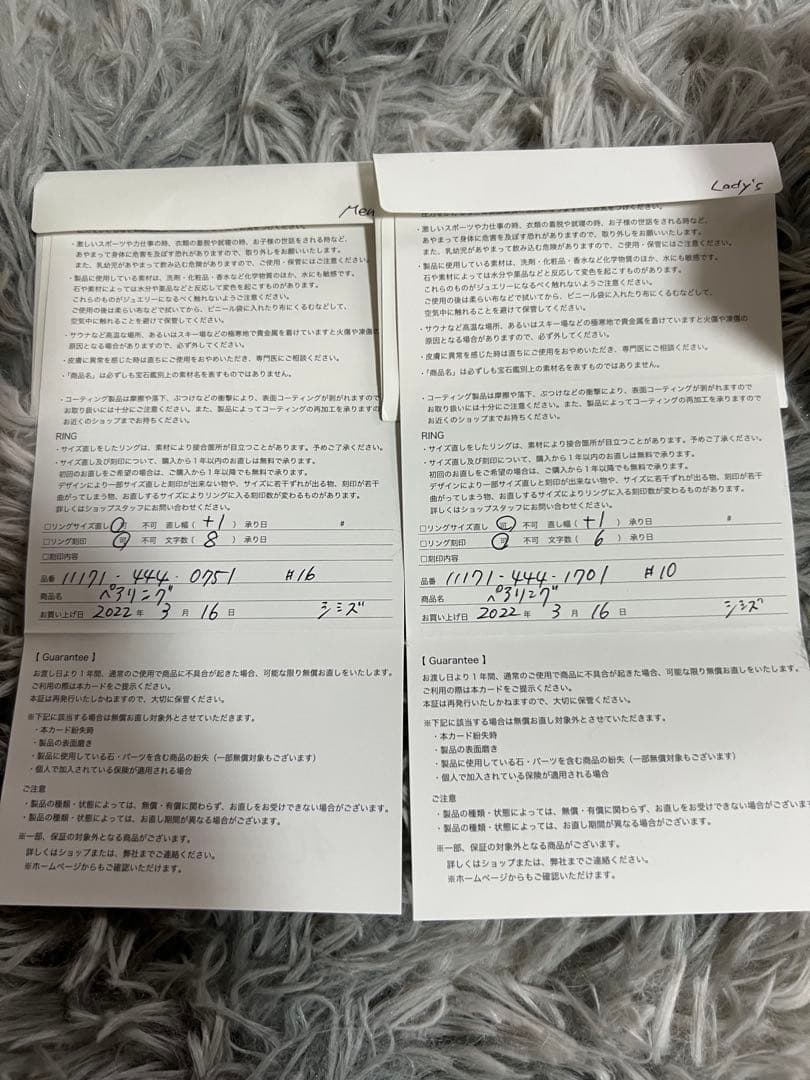 Men
・激しいスポーツや力仕事の時、衣類の着脱や就寝の時、お子様の世話をされる時など、
あやまって身体に危害を及ぼす恐れがありますので、取り外しをお願いいたします。
また、乳幼児があやまって飲み込む危険がありますので、ご使用・保管にはご注意ください。
・製品に使用している素材は、洗剤・化粧品・香水など化学物質のほか、水にも敏感です。
石や素材によっては水分や薬品などと反応して変色を起こすものがあります。
これらのものがジュエリーになるべく触れないようご注意ください。
ご使用の後は柔らかい布などで拭いてから、ビニール袋に入れたり布にくるむなどして、
空気中に触れることを避けて保管してください。
・サウナなど高温な場所、あるいはスキー場などの極寒地で貴金属を着けていますと火傷や凍傷の
原因となる場合がありますので、必ず外してください。
・皮膚に異常を感じた時は直ちにご使用をおやめいただき、専門医にご相談ください。
・「商品名」は必ずしも宝石鑑別上の素材名を表すものではありません。
・コーティング製品は摩擦や落下、ぶつけなどの衝撃により、表面コーティングが剥がれますので
お取り扱いには十分にご注意ください。また、製品によってコーティングの再加工を承りますの
お近くのショップまでお持ちください。
RING
・サイズ直しをしたリングは、素材により接合箇所が目立つことがあります。予めご了承ください。
・サイズ直し及び刻印について、購入から1年以内のお直しは無料で承ります。
初回のお直しをご希望の場合は、ご購入から1年以降でも無料で承ります。
デザインにより一部サイズ直しと刻印が出来ない物や、サイズに若干ずれが出る物、刻印が若干
曲がってしまう物、お直しするサイズによりリングに入る刻印数が変わるものがあります。
詳しくはショップスタッフにお問い合わせください。
□リングサイズ直し 可 不可 直し幅（ +1 ）承り日 #
□リング刻印 可 不可 文字数（ 8 ）承り日
□刻印内容
品番 11171-444-0751 #16
商品名 ペアリング
お買い上げ日 2022 年 3 月 16 日 シミズ
【 Guarantee 】
お渡し日より1年間、通常のご使用で商品に不具合が起きた場合、可能な限り無償お直しをいたします。
ご利用の際は本カードをご提示ください。
本証は再発行いたしかねますので、大切に保管ください。
※下記に該当する場合は無償お直し対象外とさせていただきます。
・本カード紛失時
・製品の表面磨き
・製品に使用している石・パーツを含む商品の紛失（一部無償対象もございます）
・個人で加入されている保険が適用される場合
ご注意
・製品の種類・状態によっては、無償・有償に関わらず、お直しをお受けできない場合がございます。
・製品の種類・状態によっては、お直し期間が異なる場合がございます。
※一部、保証の対象外となる商品がございます。
詳しくはショップまたは、弊社までご連絡ください。
※ホームページからもご確認いただけます。
Lady's
・激しいスポーツや力仕事の時、衣類の着脱や就寝の時、お子様の世話をされる時など、
あやまって身体に危害を及ぼす恐れがありますので、取り外しをお願いいたします。
また、乳幼児があやまって飲み込む危険がありますので、ご使用・保管にはご注意ください。
・製品に使用している素材は、洗剤・化粧品・香水など化学物質のほか、水にも敏感です。
石や素材によっては水分や薬品などと反応して変色を起こすものがあります。
これらのものがジュエリーになるべく触れないようご注意ください。
ご使用の後は柔らかい布などで拭いてから、ビニール袋に入れたり布にくるむなどして、
空気中に触れることを避けて保管してください。
・サウナなど高温な場所、あるいはスキー場などの極寒地で貴金属を着けていますと火傷や凍傷の
原因となる場合がありますので、必ず外してください。
・皮膚に異常を感じた時は直ちにご使用をおやめいただき、専門医にご相談ください。
・「商品名」は必ずしも宝石鑑別上の素材名を表すものではありません。
・コーティング製品は摩擦や落下、ぶつけなどの衝撃により、表面コーティングが剥がれますので
お取り扱いには十分にご注意ください。また、製品によってコーティングの再加工を承りますの
お近くのショップまでお持ちください。
RING
・サイズ直しをしたリングは、素材により接合箇所が目立つことがあります。予めご了承ください。
・サイズ直し及び刻印について、購入から1年以内のお直しは無料で承ります。
初回のお直しをご希望の場合は、ご購入から1年以降でも無料で承ります。
デザインにより一部サイズ直しと刻印が出来ない物や、サイズに若干ずれが出る物、刻印が若干
曲がってしまう物、お直しするサイズによりリングに入る刻印数が変わるものがあります。
詳しくはショップスタッフにお問い合わせください。
□リングサイズ直し 可 不可 直し幅（ +1 ）承り日 #
□リング刻印 可 不可 文字数（ 6 ）承り日
□刻印内容
品番 11171-444-1701 #10
商品名 ペアリング
お買い上げ日 2022 年 3 月 16 日 シミズ
【 Guarantee 】
お渡し日より1年間、通常のご使用で商品に不具合が起きた場合、可能な限り無償お直しをいたします。
ご利用の際は本カードをご提示ください。
本証は再発行いたしかねますので、大切に保管ください。
※下記に該当する場合は無償お直し対象外とさせていただきます。
・本カード紛失時
・製品の表面磨き
・製品に使用している石・パーツを含む商品の紛失（一部無償対象もございます）
・個人で加入されている保険が適用される場合
ご注意
・製品の種類・状態によっては、無償・有償に関わらず、お直しをお受けできない場合がございま
・製品の種類・状態によっては、お直し期間が異なる場合がございます。
※一部、保証の対象外となる商品がございます。
詳しくはショップまたは、弊社までご連絡ください。
※ホームページからもご確認いただけます。